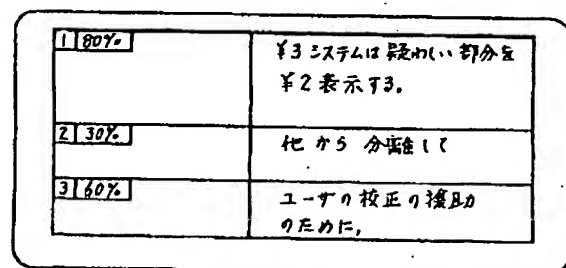 1 80%
¥3 システムは疑わしい部分を
¥2 表示する。
2 30%
他から 分離して
3 60%
ユーザの校正の援助
のために,